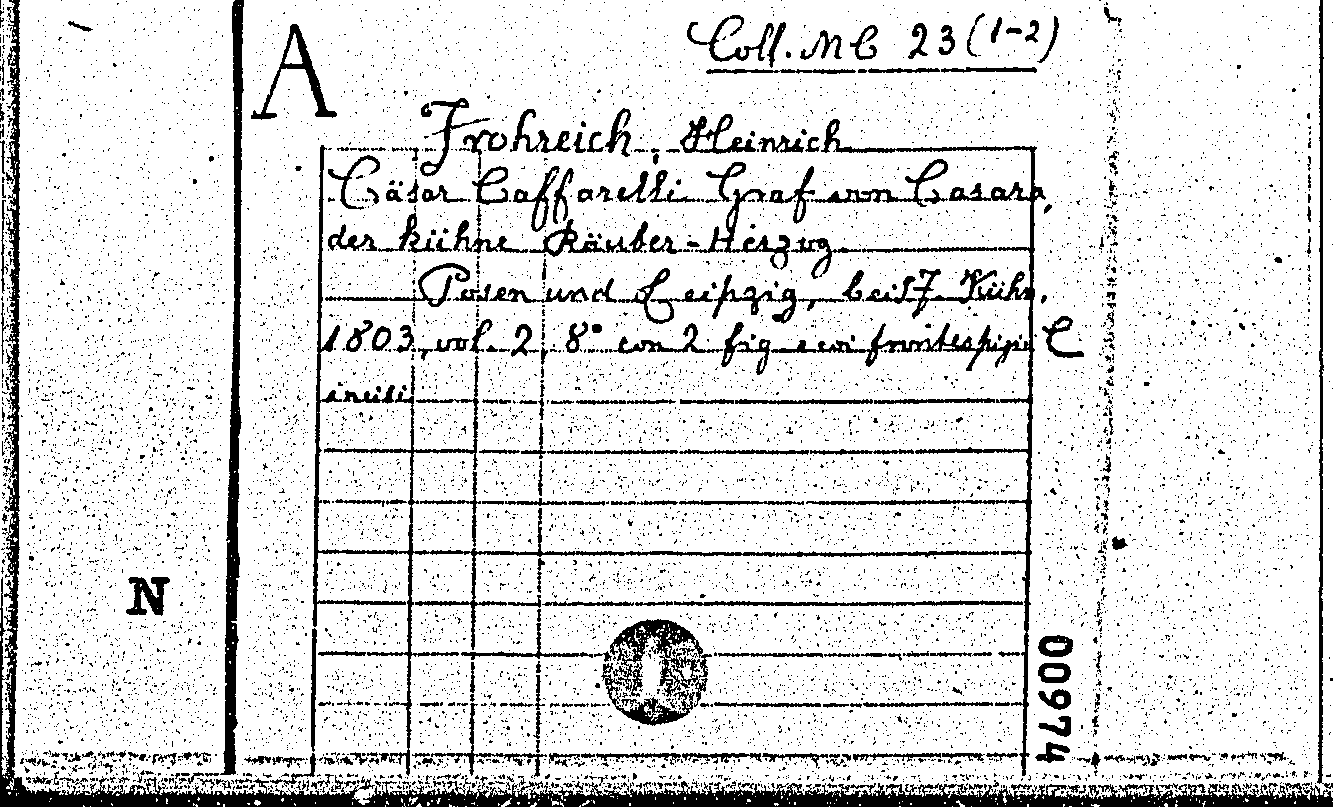 A
Coll. MC 23 (1-2)
Frohreich, Heinrich
Cäsar Caffarelli Graf von Casara,
der kühne Räuber-Herzog.
Posen und Leipzig, bei J. Kühn,
1803, vol. 2, 8° con 2 fig e con frontespizi C
incisi
N
00974